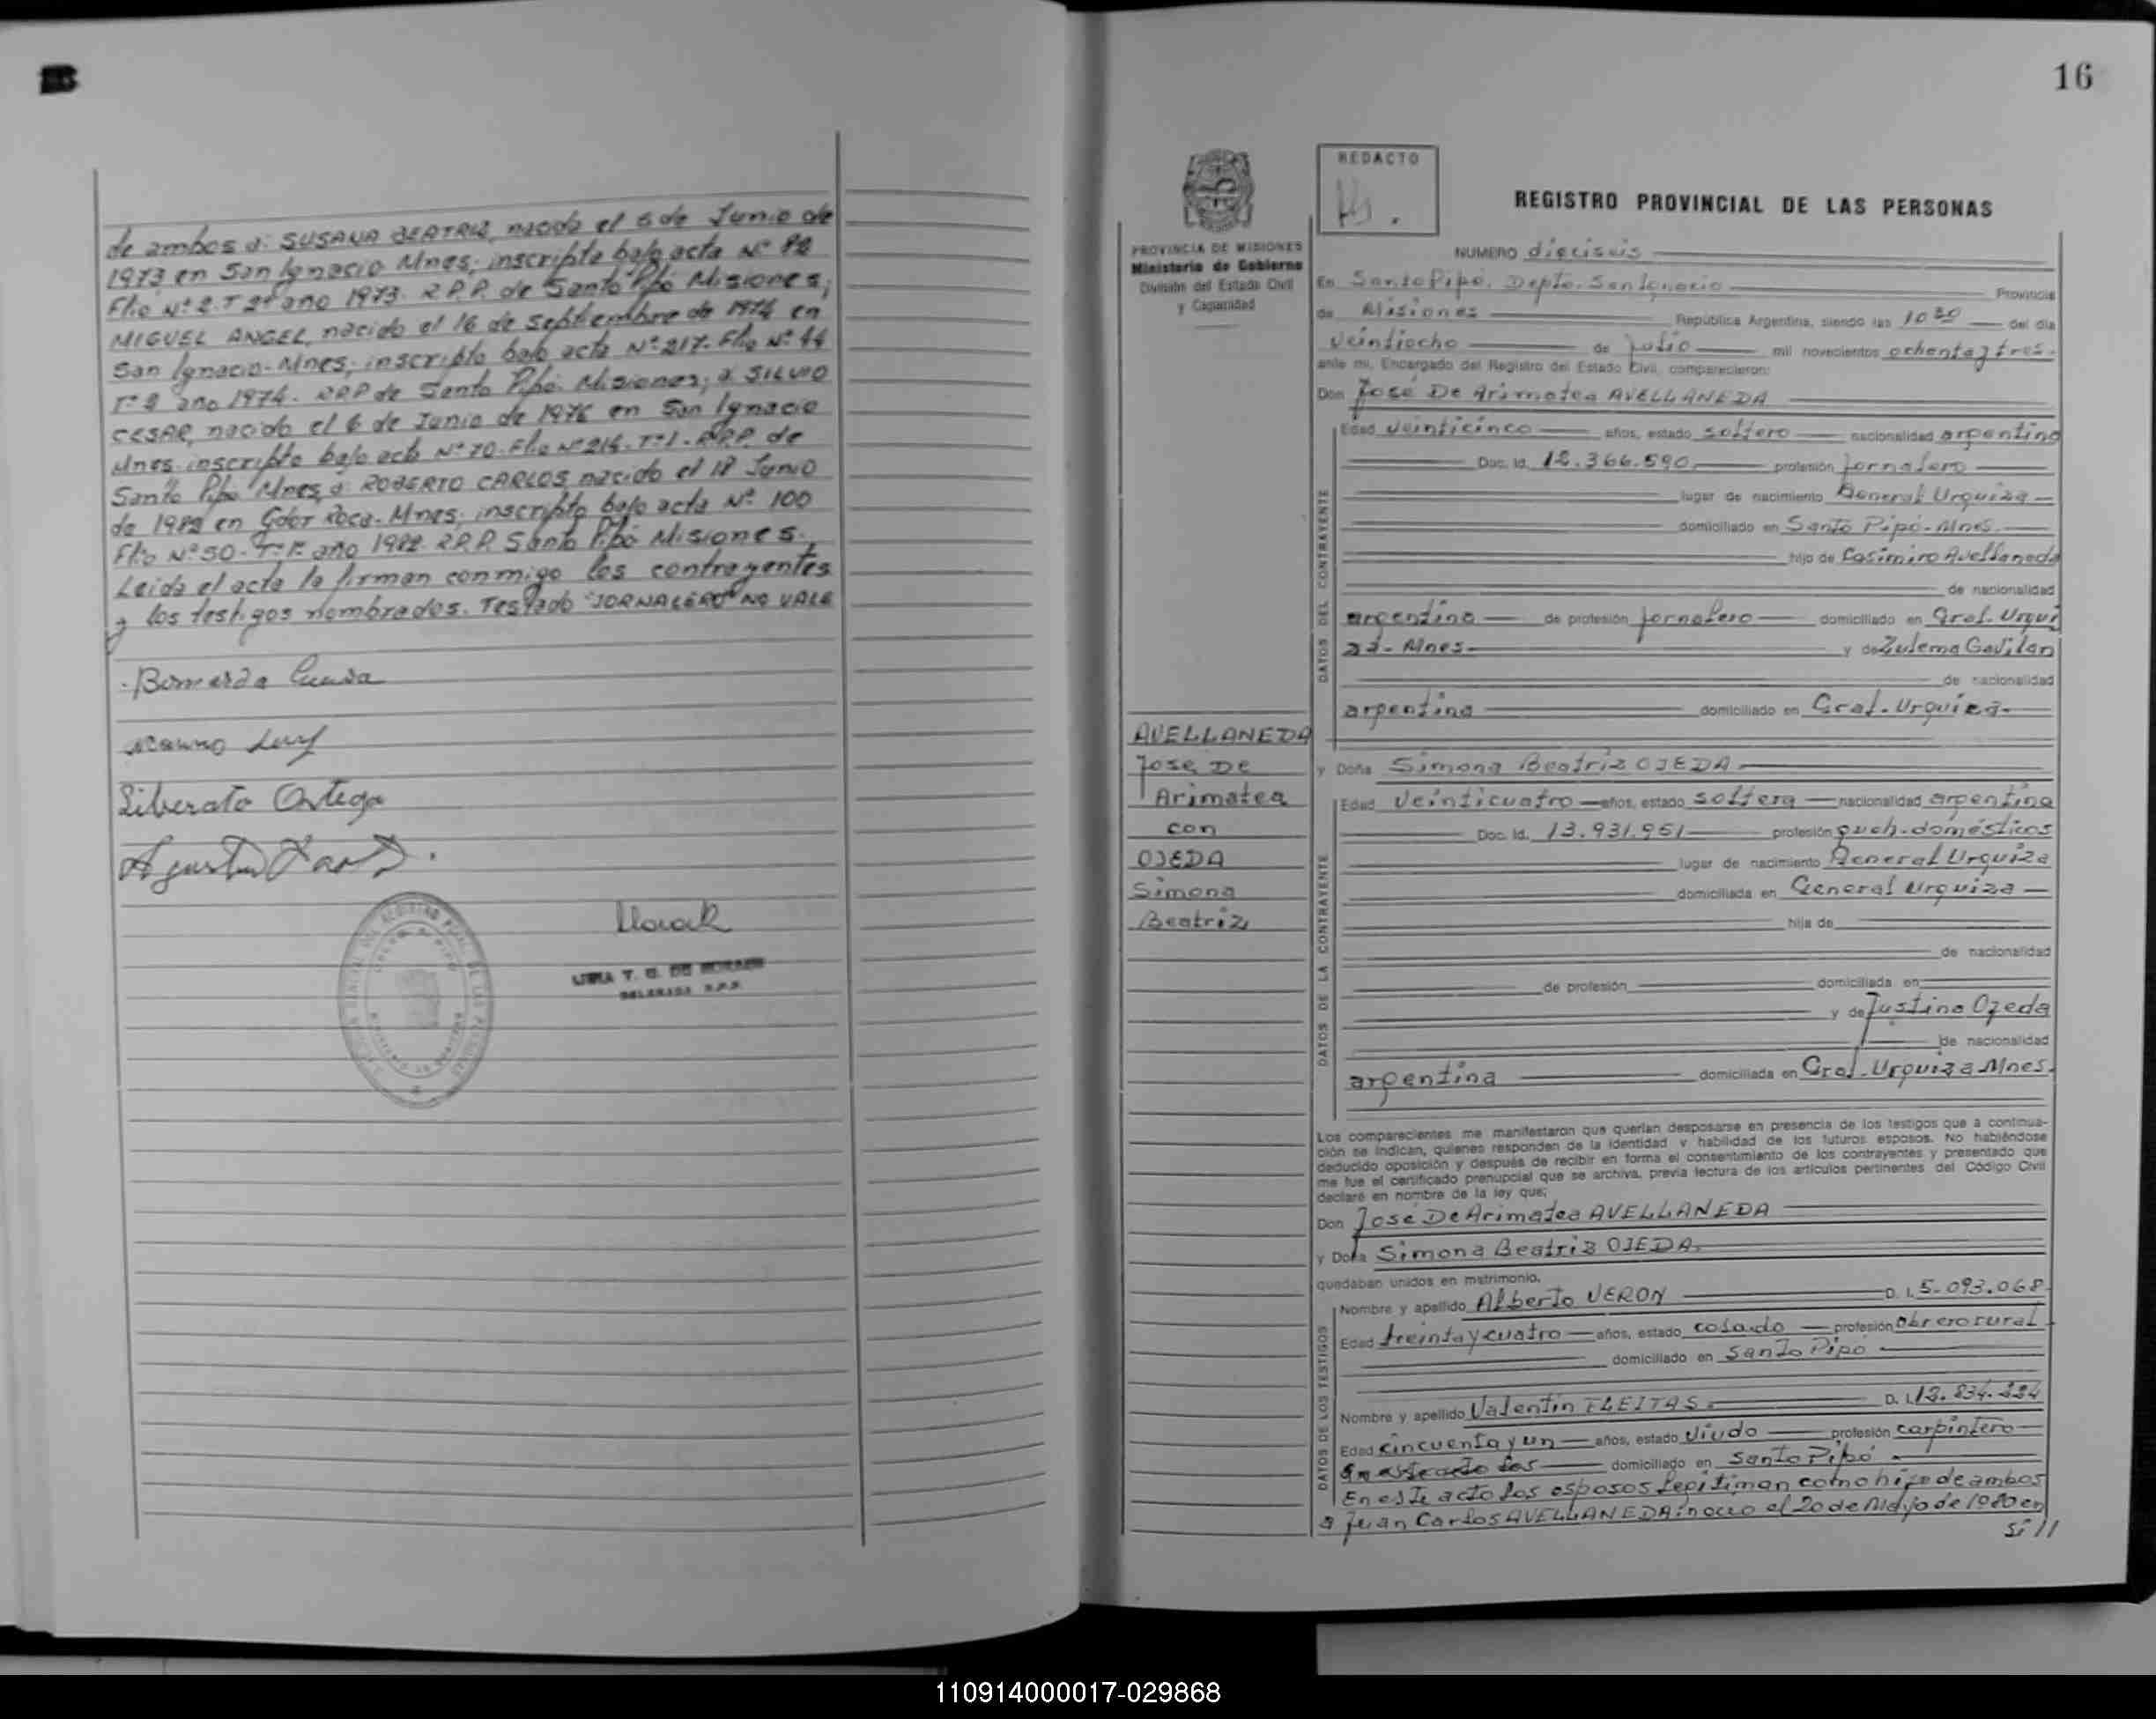 de ambos a: SUSANA BEATRIZ, nacida el 6 de Junio de
1973 en San Ignacio Mnes; inscripta bajo acta Nº 82
Flio Nº 2. T 2º año 1973. R.P.P. de Santo Pipó Misiones;
MIGUEL ANGEL, nacido el 16 de septiembre de 1974 en
San Ignacio - Mnes; inscripto bajo acta Nº 217. Flio Nº 44
Tº 2 año 1974. RRP de Santo Pipó. Misiones; a SILVIO
CESAR, nacido el 6 de Junio de 1976 en San Ignacio
Mnes. inscripto bajo acta Nº 70. Flio Nº 216. Tº 1. R.P.P. de
Santo Pipó Mnes, a ROBERTO CARLOS nacido el 18 Junio
de 1982 en Gdor Roca - Mnes; inscripto bajo acta Nº 100
Flio Nº 50 - Tº 1º año 1982. R.P.P. Santo Pipó Misiones.
Leida el acta la firman conmigo los contrayentes
y los testigos nombrados. Testado "JORNALERO" NO VALE
Liberato Ortega
16
REDACTO
PROVINCIA DE MISIONES
Ministerio de Gobierno
División del Estado Civil
y Capacidad
REGISTRO PROVINCIAL DE LAS PERSONAS
NUMERO dieciseis
En Santo Pipó, Depto. San Ignacio Provincia
de Misiones República Argentina, siendo las 10 30 del día
veintiocho de Julio mil novecientos ochenta y tres.
ante mi, Encargado del Registro del Estado Civil, comparecieron:
Don José De Arimatea AVELLANEDA
Edad veinticinco años, estado soltero nacionalidad argentino
Doc. Id. 12.366.590 profesión Jornalero
lugar de nacimiento General Urquiza
domiciliado en Santo Pipó - Mnes.
hijo de Casimiro Avellaneda
de nacionalidad
argentina de profesión jornalero domiciliado en Gral. Urqui
za - Mnes. y de Zulema Gavilan
de nacionalidad
argentina domiciliado en Gral. Urquiza.
DATOS DEL CONTRAYENTE
AVELLANEDA
Jose De
Arimatea
con
OJEDA
Simona
Beatriz
y Doña Simona Beatriz OJEDA
Edad veinticuatro años, estado soltera nacionalidad argentina
Doc. Id. 13.931.951 profesión queh. domésticos
lugar de nacimiento General Urquiza
domiciliada en General Urquiza
hija de
de nacionalidad
de profesión domiciliada en
y de Justina Ojeda
de nacionalidad
argentina domiciliada en Gral. Urquiza Mnes.
DATOS DE LA CONTRAYENTE
Los comparecientes me manifestaron que querían desposarse en presencia de los testigos que a continua-
ción se indican, quienes responden de la identidad y habilidad de los futuros esposos. No habiéndose
deducido oposición y después de recibir en forma el consentimiento de los contrayentes y presentado que
me fue el certificado prenupcial que se archiva, previa lectura de los artículos pertinentes del Código Civil
declaré en nombre de la ley que;
Don José De Arimatea AVELLANEDA
y Doña Simona Beatriz OJEDA.
quedaban unidos en matrimonio.
Nombre y apellido Alberto VERON D. I. 5.093.068
Edad treinta y cuatro años, estado casado profesión obrero rural
domiciliado en Santo Pipó
Nombre y apellido Valentin FLEITAS. D. I.
Edad cincuenta y un años, estado viudo profesión carpintero
domiciliado en Santo Pipó
DATOS DE LOS TESTIGOS
En este acto los esposos legitiman como hijo de ambos
a Juan Carlos AVELLANEDA: nacio el 20 de Mayo de 1980 en
110914000017-029868